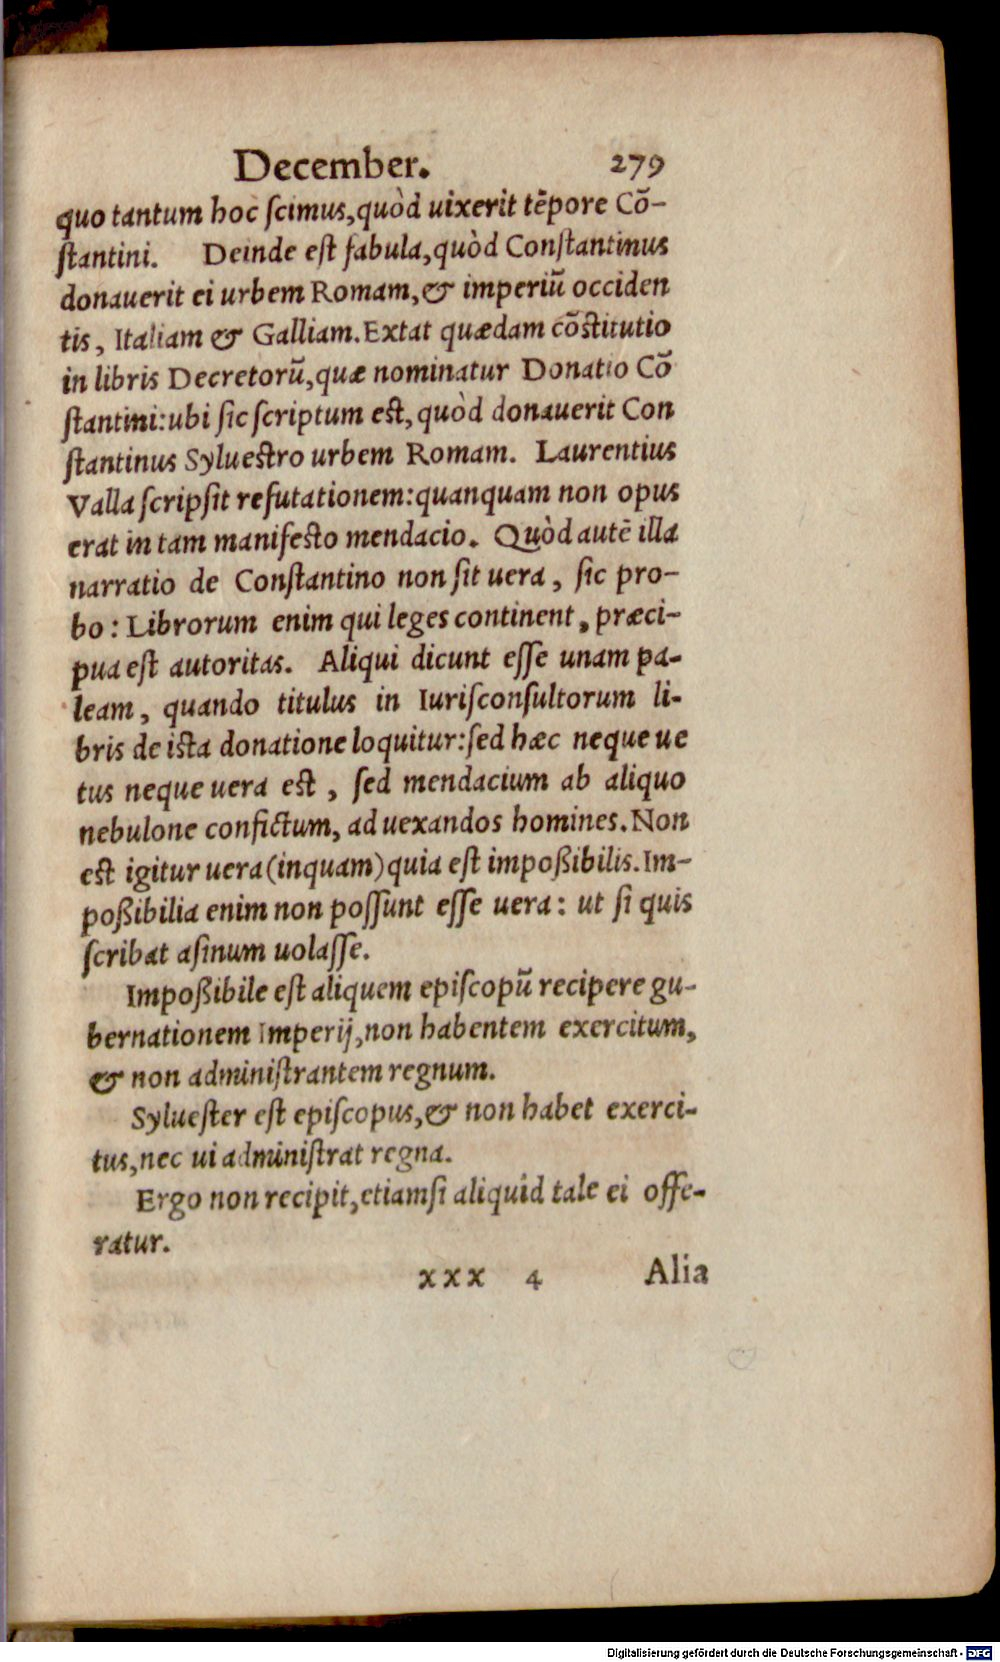 December. 279
quo tantum hoc ſcimus, quòd uixerit tẽpore Cõ-
ſtantini. Deinde eſt fabula, quòd Conſtantinus
donauerit ei urbem Romam, & imperiũ occiden
tis, Italiam & Galliam. Extat quædam cõſtitutio
in libris Decretorũ, quæ nominatur Donatio Cõ
ſtantini: ubi ſic ſcriptum eſt, quòd donauerit Con
ſtantinus Sylueſtro urbem Romam. Laurentius
Valla ſcripſit refutationem: quanquam non opus
erat in tam manifeſto mendacio. Quòd autẽ illa
narratio de Conſtantino non ſit uera, ſic pro-
bo: Librorum enim qui leges continent, præci-
pua eſt autoritas. Aliqui dicunt eſſe unam pa-
leam, quando titulus in Iuriſconſultorum li-
bris de iſta donatione loquitur: ſed hæc neque ue
tus neque uera eſt, ſed mendacium ab aliquo
nebulone confictum, ad uexandos homines. Non
eſt igitur uera (inquam) quia eſt impoßibilis. Im-
poßibilia enim non poſſunt eſſe uera: ut ſi quis
ſcribat aſinum uolaſſe.
Impoßibile eſt aliquem epiſcopũ recipere gu-
bernationem Imperij, non habentem exercitum,
& non adminiſtrantem regnum.
Sylueſter eſt epiſcopus, & non habet exerci-
tus, nec ui adminiſtrat regna.
Ergo non recipit, etiamſi aliquid tale ei offe-
ratur.
xxx 4 Alia
Digitalisierung gefördert durch die Deutsche Forschungsgemeinschaft - DFG